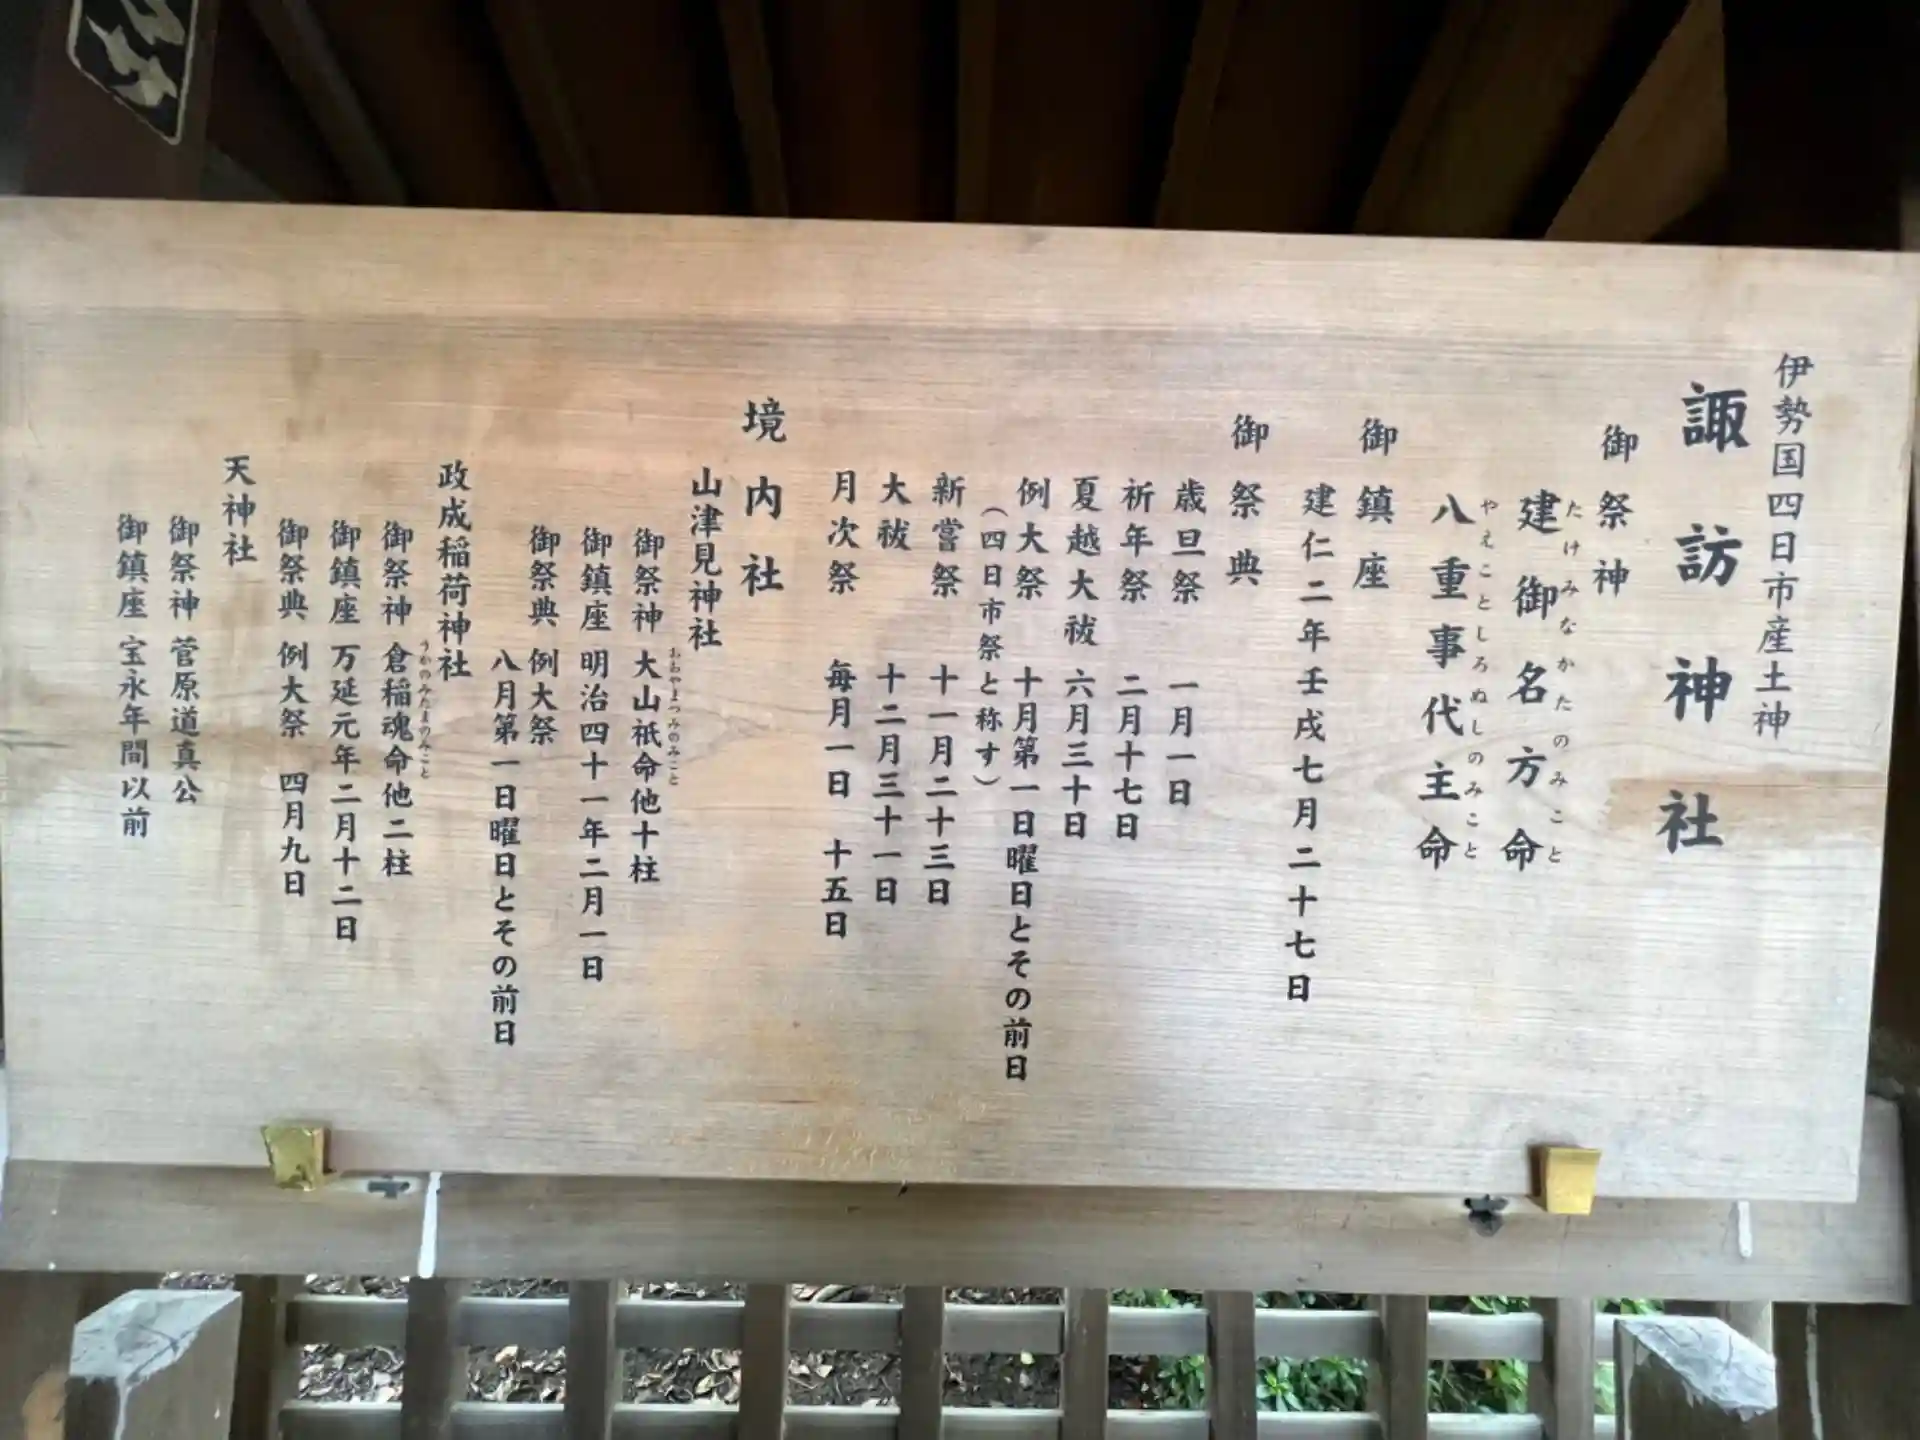 伊勢国四日市産土神
諏訪神社
御祭神
建御名方命
たけみなかたのみこと
八重事代主命
やえことしろぬしのみこと
御鎮座
建仁二年壬戌七月二十七日
御祭典
歳旦祭 一月一日
祈年祭 二月十七日
夏越大祓 六月三十日
例大祭 十月第一日曜日とその前日
（四日市祭と称す）
新嘗祭 十一月二十三日
大祓 十二月三十一日
月次祭 毎月一日 十五日
境内社
山津見神社
御祭神 大山祇命他十柱
おおやまつみのみこと
御鎮座 明治四十一年二月一日
御祭典 例大祭
八月第一日曜日とその前日
政成稲荷神社
御祭神 倉稲魂命他二柱
うかのみたまのみこと
御鎮座 万延元年二月十二日
御祭典 例大祭 四月九日
天神社
御祭神 菅原道真公
御鎮座 宝永年間以前